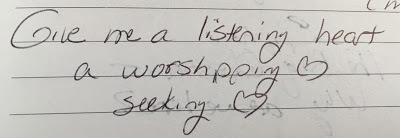 Give me a listening heart
a worshpping ♡
seeking ♡